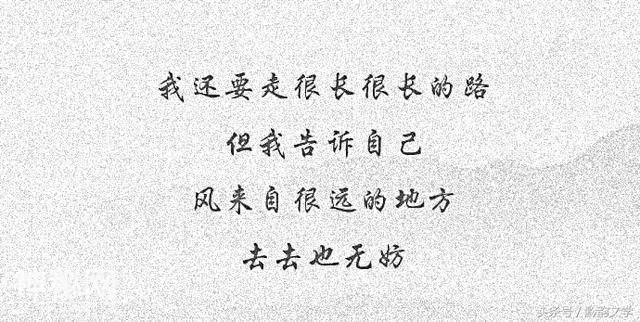 我还要走很长很长的路
但我告诉自己
风来自很远的地方
去去也无妨